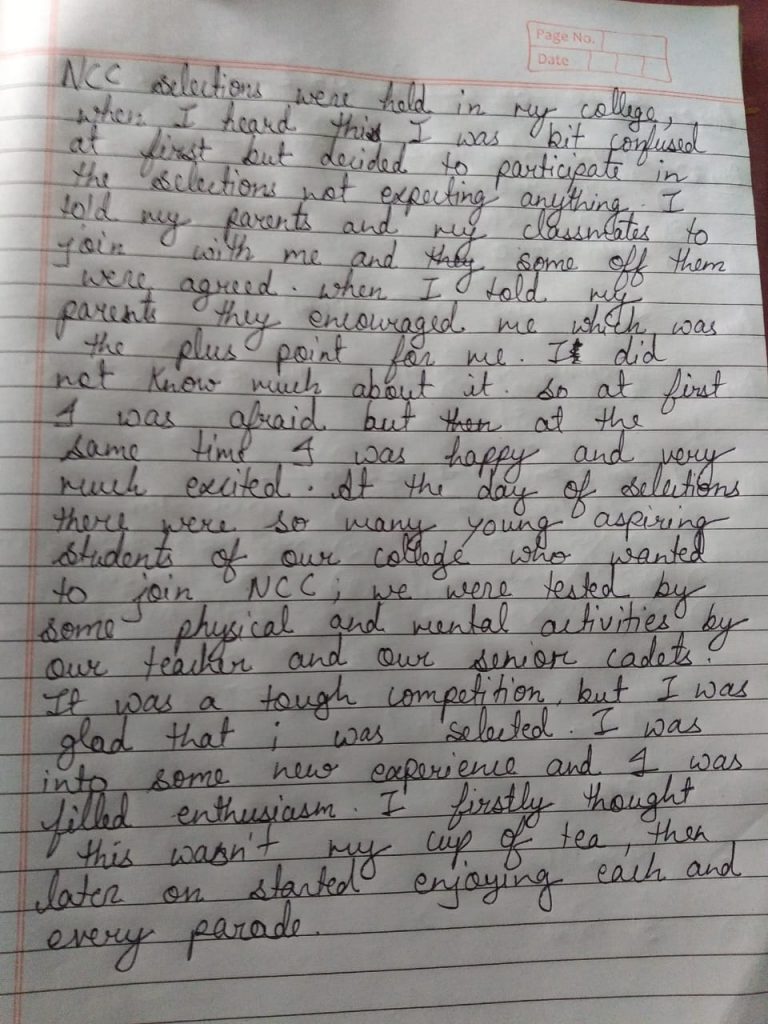 Page No.
Date
NCC selections were held in my college,
when I heard this I was bit confused
at first but decided to participate in
the selections not expecting anything. I
told my parents and my classmates to
join with me and they some off them
were agreed. when I told my
parents they encouraged me which was
the plus point for me. I did
not know much about it. so at first
I was afraid but then at the
same time I was happy and very
much excited. At the day of selections
there were so many young aspiring
students of our college who wanted
to join NCC; we were tested by
some physical and mental activities by
our teacher and our senior cadets.
It was a tough competition, but I was
glad that i was selected. I was
into some new experience and I was
filled enthusiasm. I firstly thought
this wasn't my cup of tea, then
later on started enjoying each and
every parade.